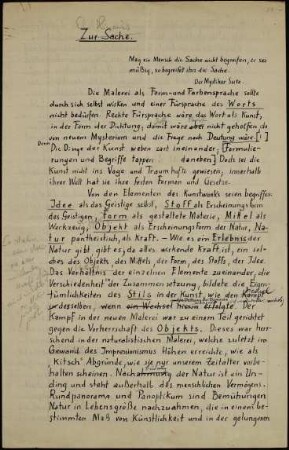 Zur Sache.
Mag ein Mensch die Sache nicht begreifen, er sei
müßig, so begreifet ihn die Sache.
Der Mystiker Suso.
Die Malerei als Form- und Farbensprache sollte
durch sich selbst wirken und einer Fürsprache des Worts
nicht bedürfen. Rechte Fürsprache wäre das Wort als Kunst,
in der Form der Dichtung; damit wäre aber nicht geholfen
neuen Mysterium und die Frage nach Deutung wär
Die Dinge der Kunst weben zart ineinander; Formulie-
rungen und Begriffe tappen daneben. Doch sei die
Kunst nicht ins Vage und Traumhafte gewiesen, innerhalb
ihrer Welt hat sie ihre festen Formen und Gesetze.
Von den Elementen des Kunstwerks seien begriffen:
Idee als das Geistige selbst, Stoff als Erscheinungsform
des Geistigen, Form als gestaltete Materie, Mittel als
Werkzeug, Objekt als Erscheinungsform der Natur, Na-
tur pantheistisch, als Kraft. – Wie es ein Erlebnis der
Natur gibt gibt es, da alles wirkende Kraft ist, ein sol-
ches des Objekts, des Mittels, der Form, des Stoffs, der Idee.
Das Verhältnis der einzelnen Elemente zueinander, die
Verschiedenheit der Zusammensetzung, bildete die Eigen-
tümlichkeiten des Stils in der Kunst, wie den Kampf
derselben, wenn
Kampf in der neuen Malerei war zu einem Teil gerichtet
gegen die Vorherrschaft des Objekts. Dieses war herr-
schend in der naturalistischen Malerei, welche zuletzt im
Gewand des Impressionismus Höhen erreichte, wie als
Kitsch Abgründe, wie sie nur unserem Zeitalter vorbe-
halten scheinen. Nachahmung der Natur ist ein Un-
ding und steht außerhalb des menschlichen Vermögens.
Rundpanorama und Panoptikum sind Bemühungen
Natur in Lebensgröße nachzuahmen, die in einem be-
stimmten Maß von Künstlichkeit und in der gelungenen